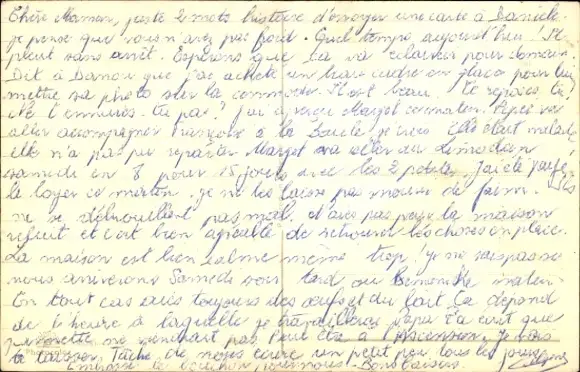 Chère Maman, juste 2 mots histoire d'envoyer une carte à Daniele
je pense que vous n'avez pas froid. Quel temps aujourd'hui! Il
pleut sans arrêt. Espérons que ça va s'éclaircir pour demain.
Dit à Danou que j'ai acheté un beau cadre en glace pour lui
mettre sa photo sur la commode. Il est beau. Te reposes tu?
Ne t'ennuies-tu pas? J'ai aperçu Margot ce matin.
aller accompagner Françoise à la je crois. Elle était malade
elle n'a pas pu repartir. Margot va aller au Limousin
samedi en 8 pour 15 jours avec les 2 petits. J'ai été payé
le loyer ce matin. je ne les laisse pas mourir de faim. Ils
ne se débrouillent pas mal, la maison
reluit et c'est bien agréable de retrouver les choses en place.
La maison est bien calme même trop! je ne sais pas si
nous arriverons Samedi soir tard ou Dimanche matin.
En tout cas aies toujours des œufs et du lait. Ça dépend
de l'heure à laquelle je travaillerai. Papa t'a écrit que
ne viendrait pas. Peut être à l'Ascension. Je vais
te laisser. Tâche de nous écrire un petit peu tous les jours.
Embrasse le bouchon pour nous. Bons baisers.